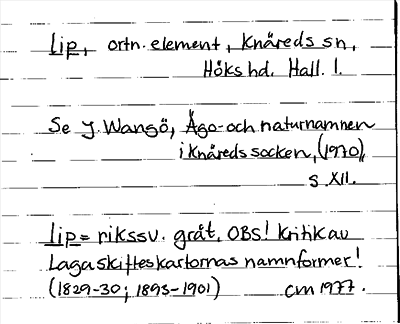 lip, ortn. element, Knäreds sn,
Höks hd. Hall. l.
Se J. Wangö, Ägo- och naturnamnen
i Knäreds socken, (1970),
s. XII.
lip = rikssv. gråt. OBS! Kritik av
Laga skifteskartornas namnformer!
(1829-30; 1895-1901) CM 1977.